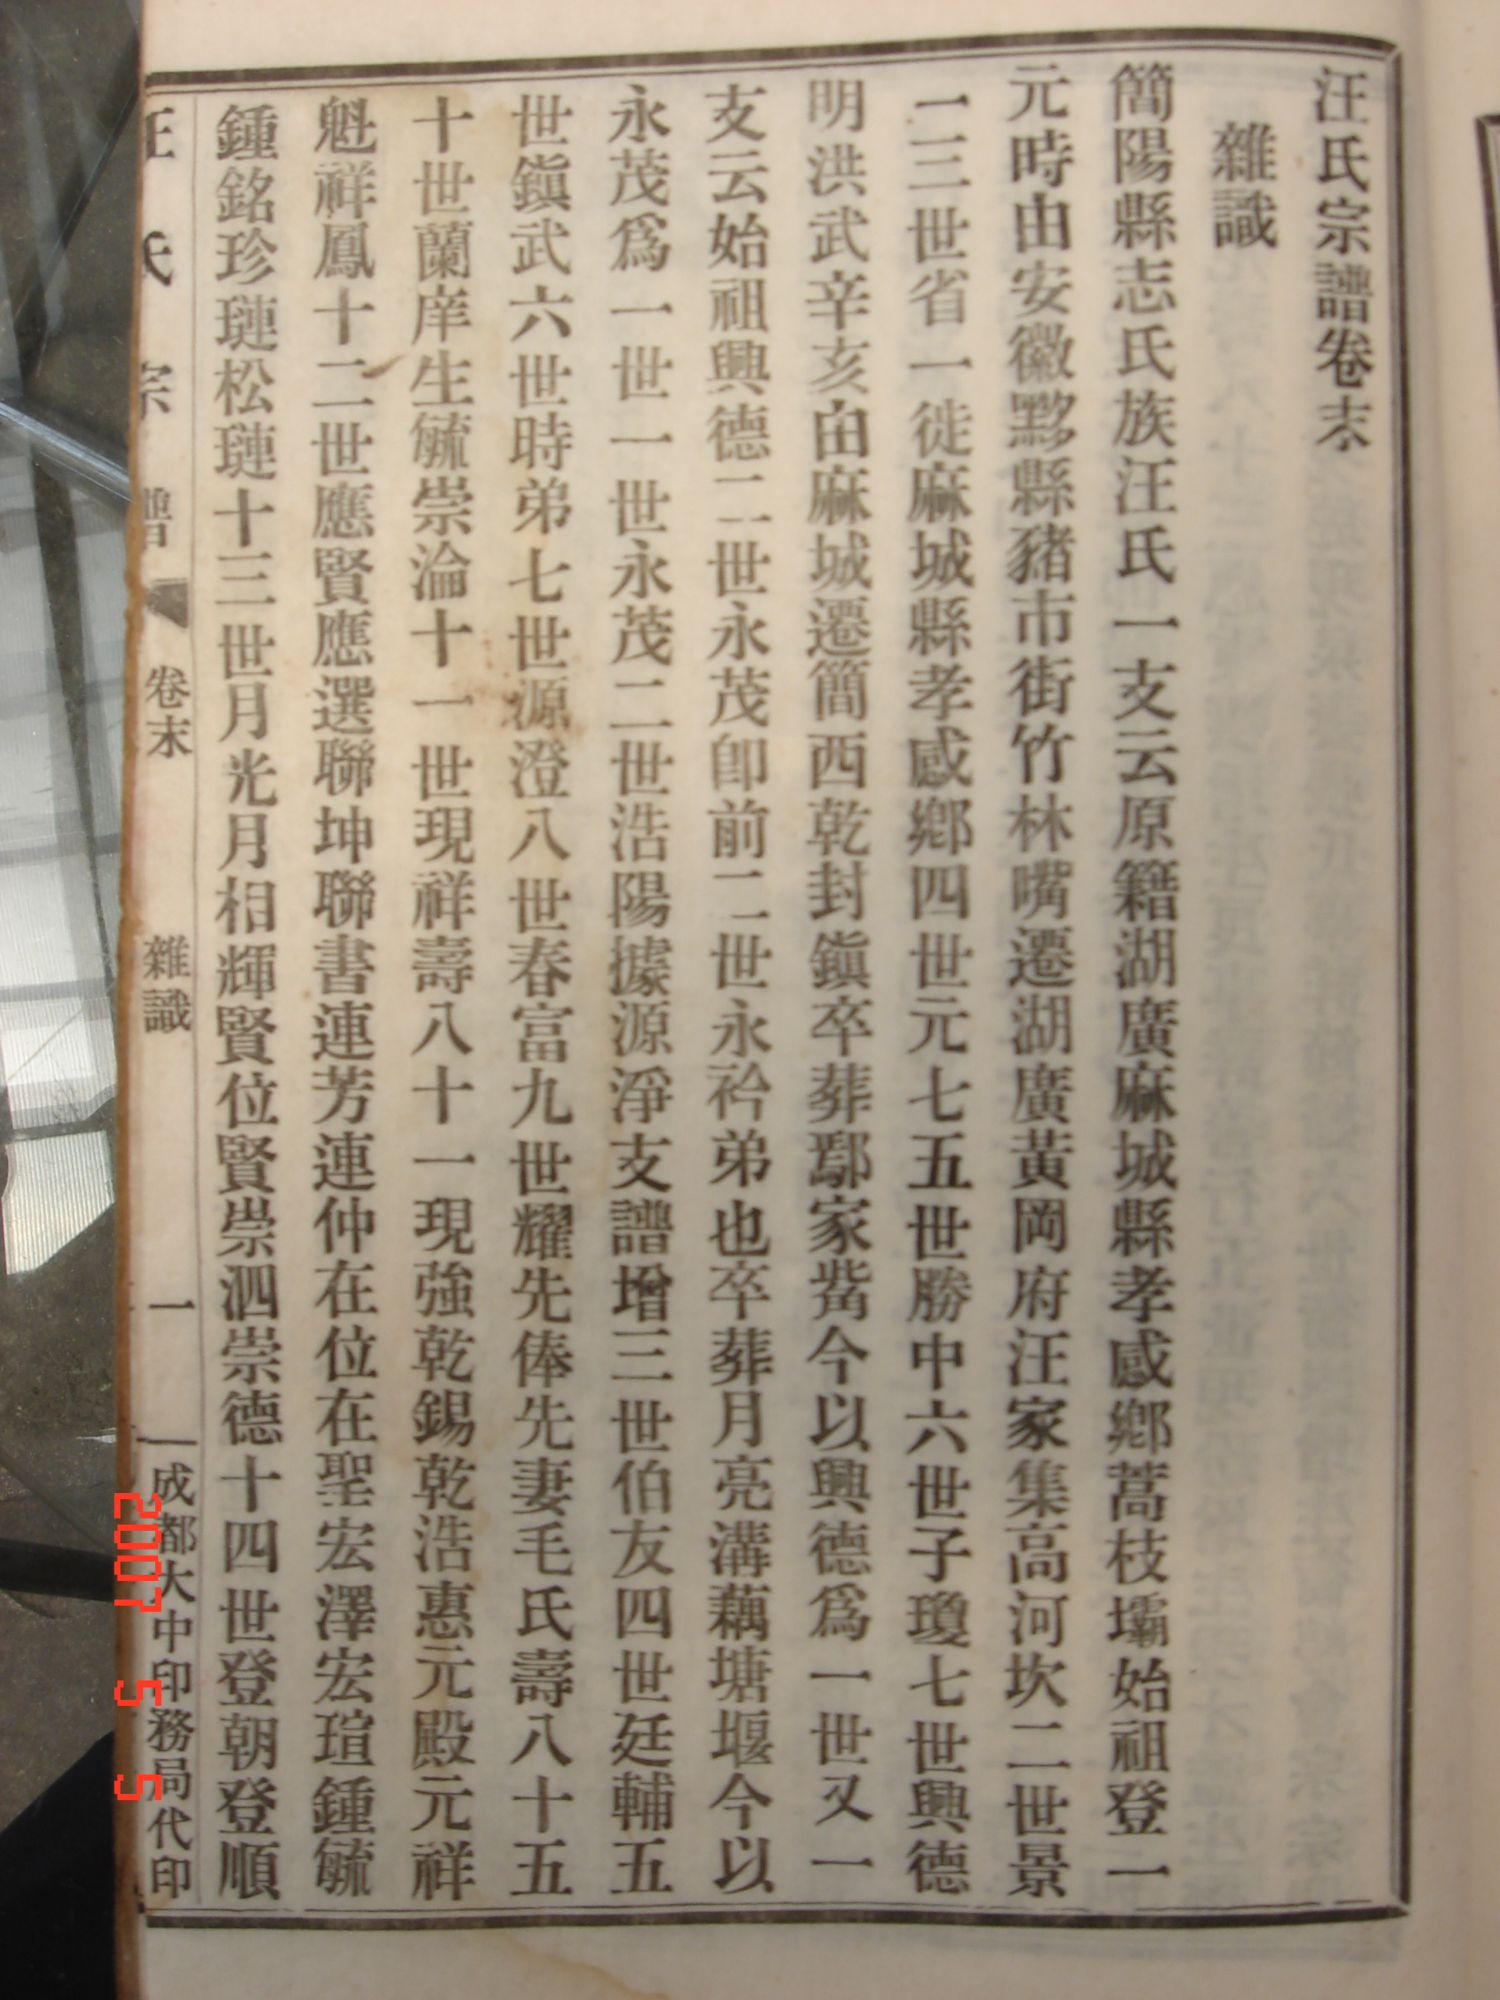 汪氏宗譜卷末
雜識
簡陽縣志氏族汪氏一支云原籍湖廣麻城縣孝感鄉蒿枝壩始祖登一
元時由安徽黟縣豬市街竹林嘴遷湖廣黃岡府汪家集高河坎二世景
一三世省一徙麻城縣孝感鄉四世元七五世勝中六世子瓊七世興德
明洪武辛亥由麻城遷簡西乾封鎮卒葬鄢家嵐今以興德爲一世又一
支云始祖興德二世永茂卽前二世永衿弟也卒葬月亮溝藕塘堰今以
永茂爲一世一世永茂二世浩陽據源淨支譜增三世伯友四世廷輔五
世鎭武六世時弟七世源澄八世春富九世耀先俸先妻毛氏壽八十五
十世蘭庠生毓崇淪十一世現祥壽八十一現強乾錫乾浩惠元殿元祥
魁祥鳳十二世應賢應選聯坤聯書連芳連仲在位在聖宏澤宏瑄鍾毓
鍾銘珍璉松璉十三世月光月相輝賢位賢崇泗崇德十四世登朝登順
汪氏宗譜 卷末 雜識 一 成都大中印務局代印
2007 5 5